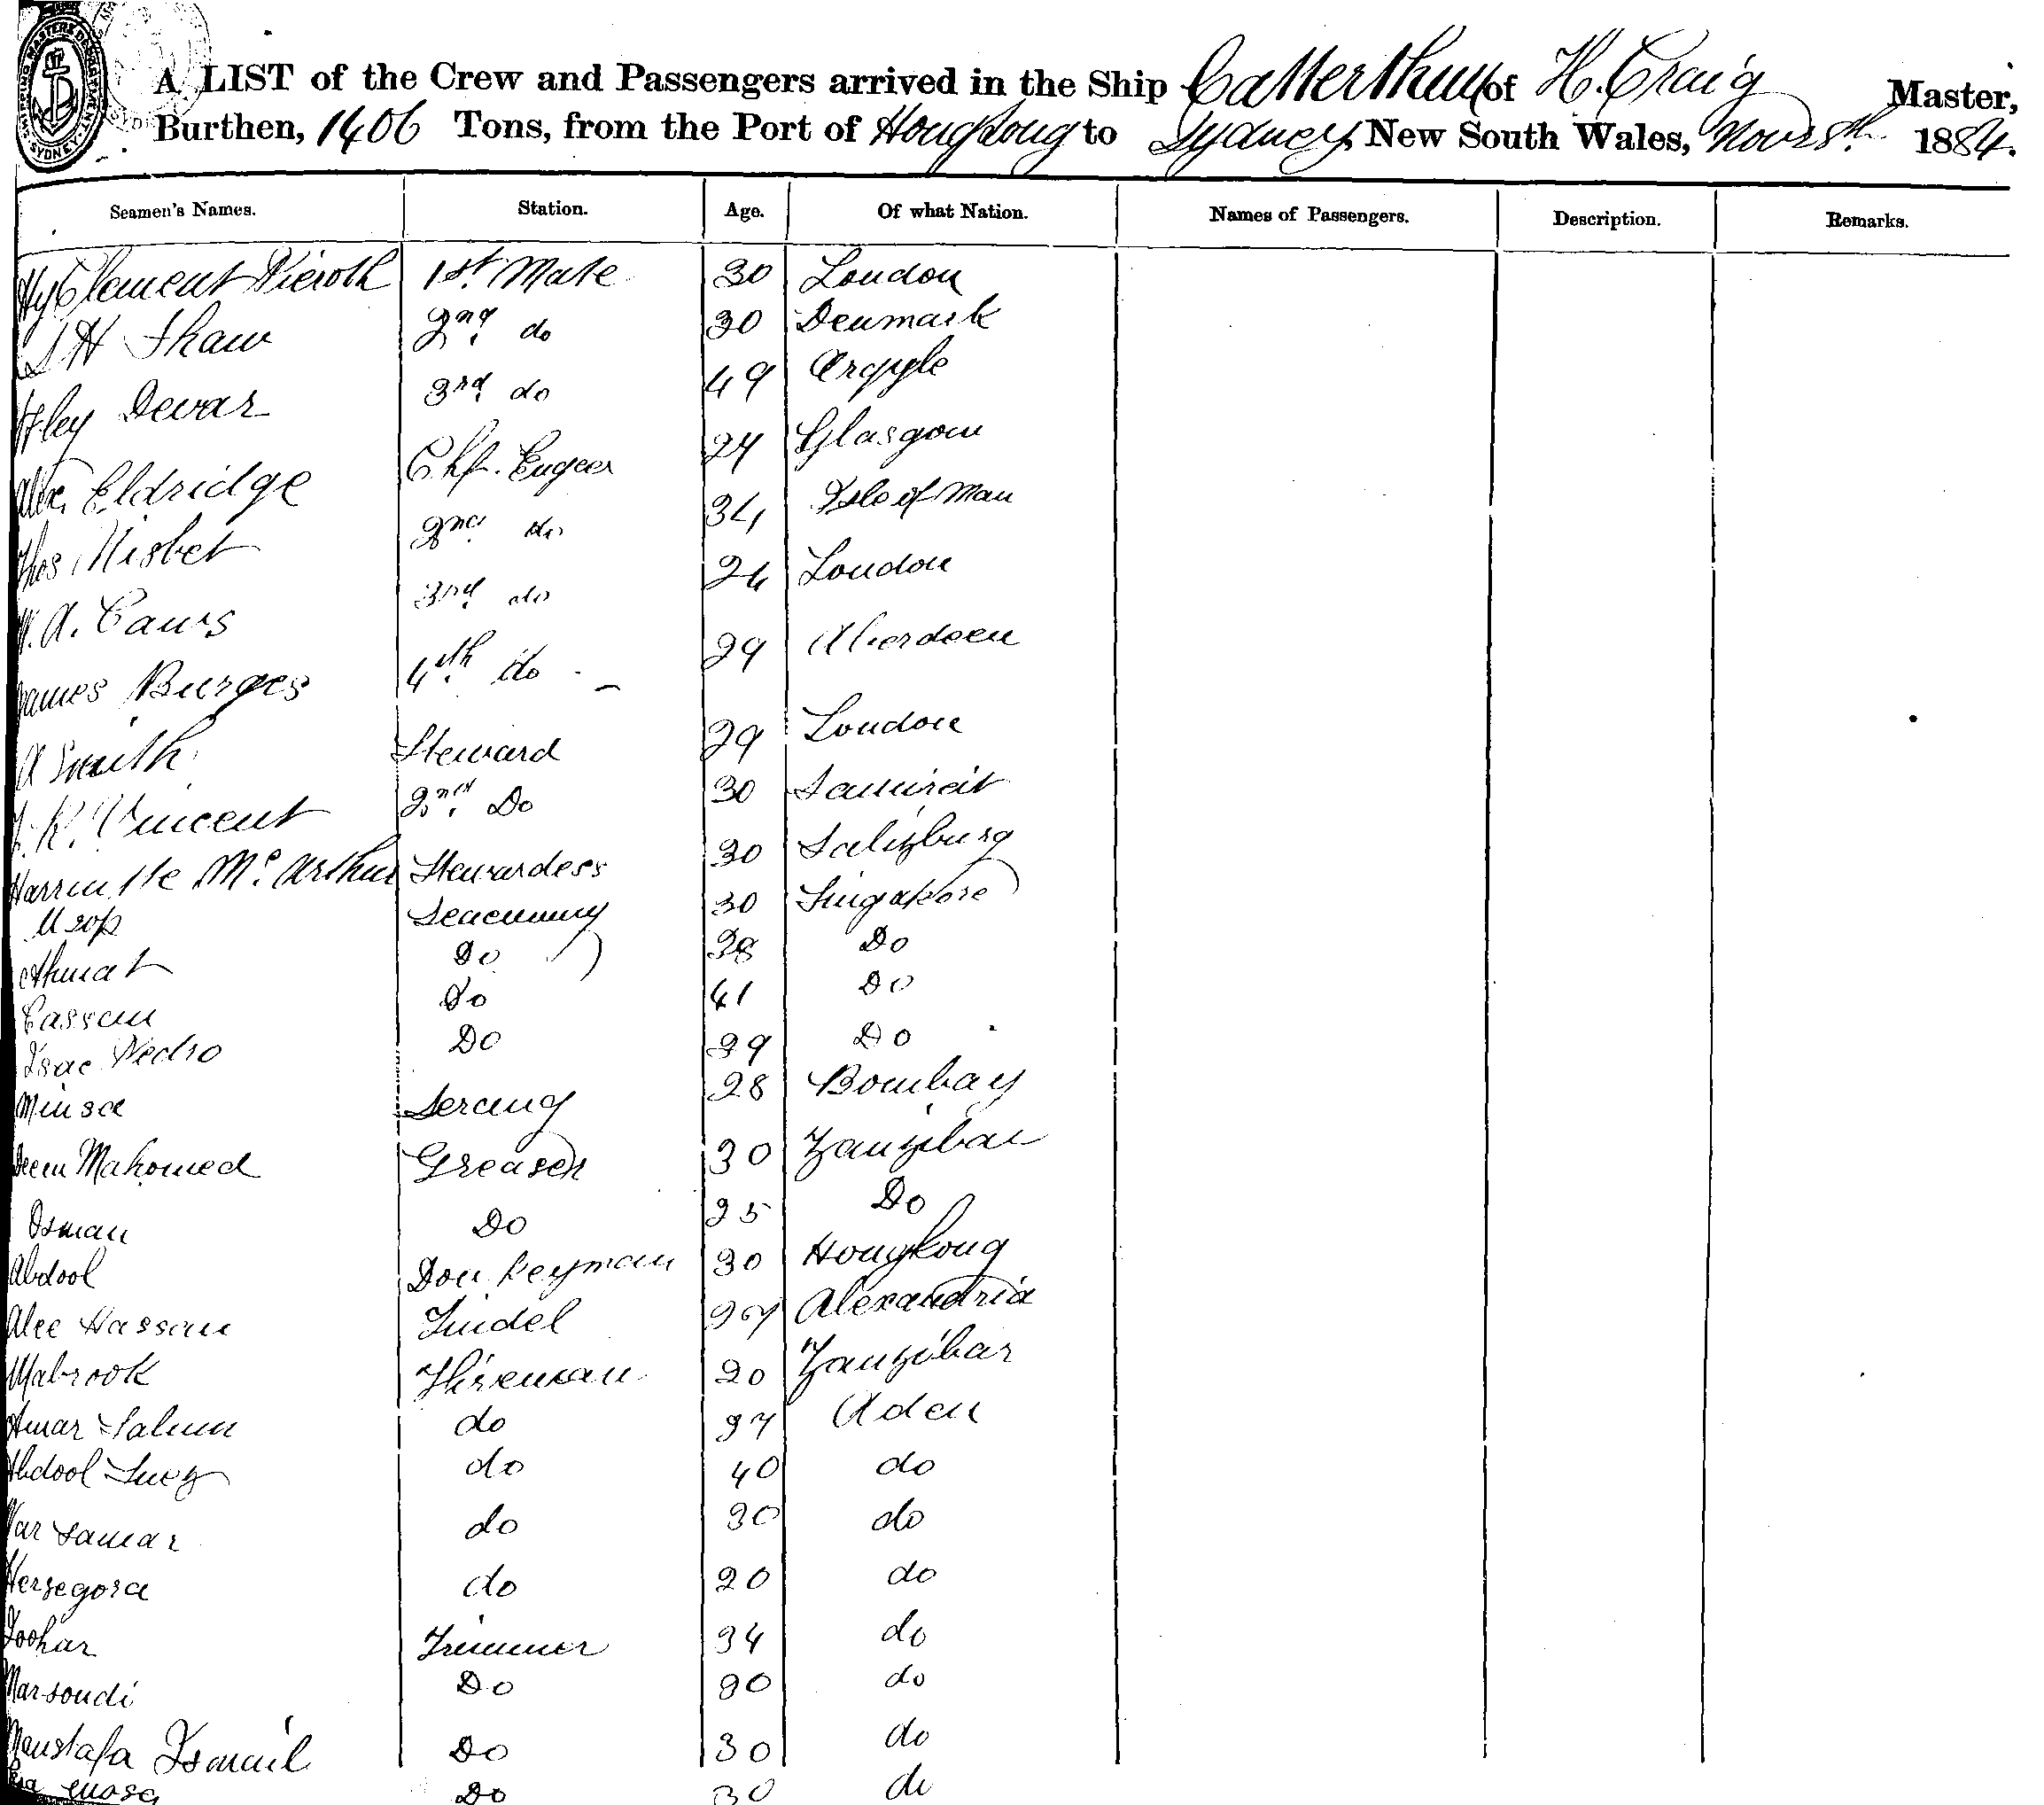 SHIPPING MASTERS DEPARTMENT SYDNEY
A LIST of the Crew and Passengers arrived in the Ship Catterthun of H. Craig Master,
Burthen, 1406 Tons, from the Port of Hongkong to Sydney New South Wales, Novr 8th 1884.
Seamen's Names. Station. Age. Of what Nation. Names of Passengers. Description. Remarks.
Hy Clement Pieroth 1st Mate 30 London
S H Shaw 2nd do 30 Denmark
Devar 3rd do 49 Argyle
Alex Eldridge Chf. Engeer 24 Glasgow
Thos Nisbet 2nd do 34 Isle of Man
W. A. Caws 3rd do 24 London
James Burges 4th do 29 Aberdeen
A Smith Steward 29 London
J. R. Vincent 2nd Do 30
Mc Arthur Stewardess 30 Salizburg
Usop Seacunny 30 Singapore
Ahmat Do 38 Do
Cassem Do 41 Do
Isac Pedro Do 39 Do
Minsa Serang 28 Bombay
Deen Mahomed Greaser 30 Zanzibar
Osman Do 25 Do
Abdool Donkeyman 30 Hongkong
Alee Hassan Tindel Alexandria
Mabrook Fireman 20 Zanzibar
Amar Salum do 37 Aden
Abdool Suez do 40 do
Var Samar do 30 do
Hersegora do 20 do
Toohar Trimmer 34 do
Marsoudi Do 30 do
Moustafa Ismail Do 30 do
Do 30 do